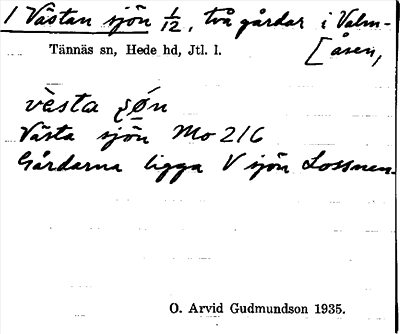 1 Västan sjön 1/12, två gårdar i Valm-
[åsen,
Tännäs sn, Hede hd, Jtl. l.
vèsta ʂøn
Västa sjön Mo 216
Gårdarna ligga V sjön Lossnen.
O. Arvid Gudmundson 1935.